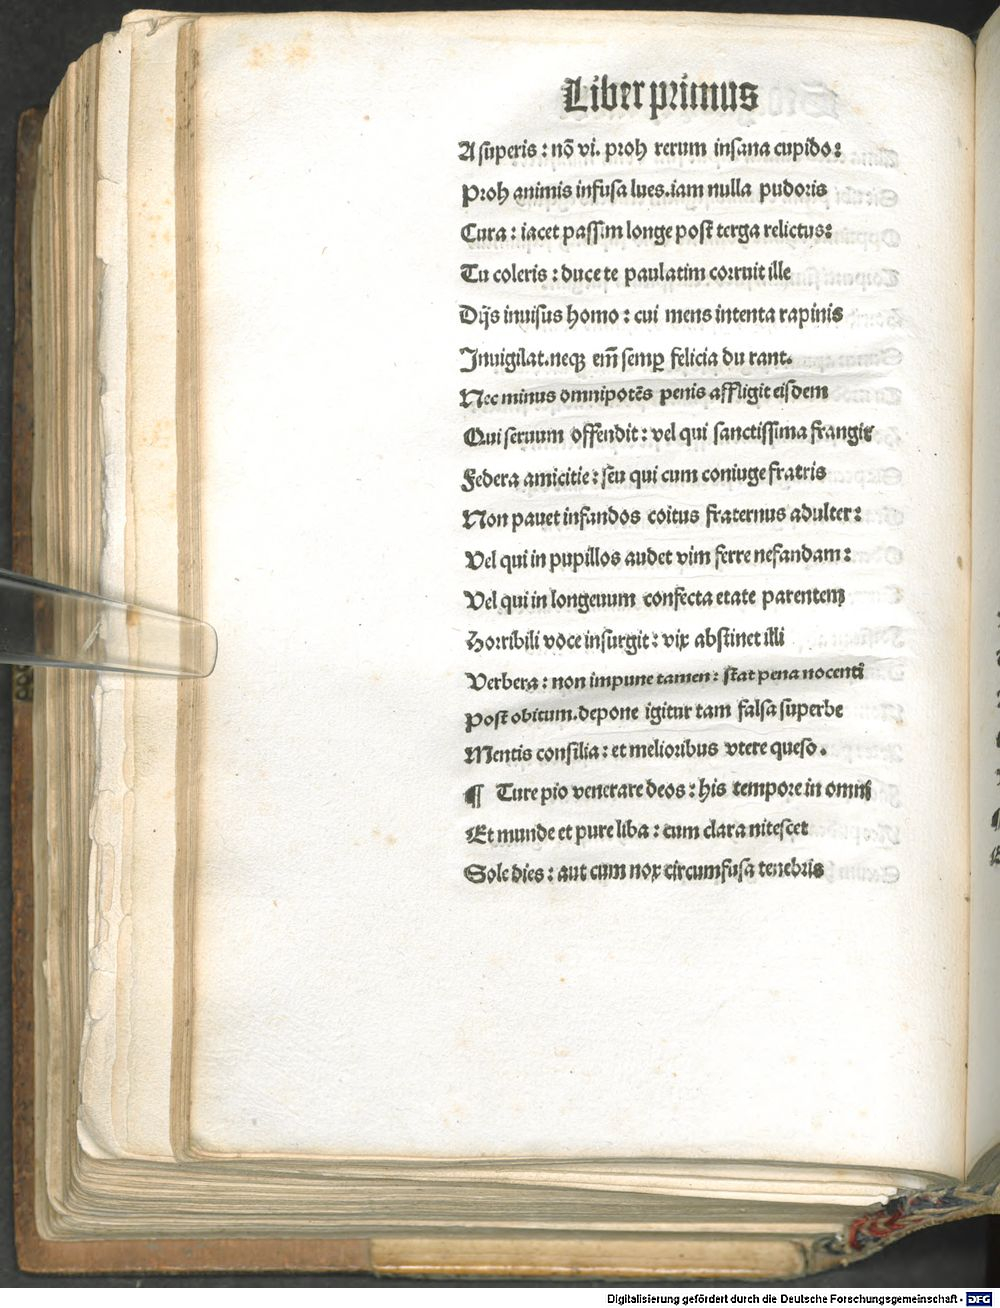 Liber primus
A superis : nõ vi. proh rerum insana cupido :
Proh animis infusa lues. iam nulla pudoris
Cura : iacet passim longe post terga relictus :
Tu coleris : duce te paulatim corruit ille
Dijs inuisus homo : cui mens intenta rapinis
Inuigilat. neqꝫ em̃ semꝑ felicia du rant.
Nec minus omnipotẽs penis affligit eisdem
Qui seruum offendit : vel qui sanctissima frangit
Federa amicitie : seu qui cum coniuge fratris
Non pauet infandos coitus fraternus adulter :
Vel qui in pupillos audet vim ferre nefandam :
Vel qui in longeuum confecta etate parentem
Horribili voce insurgit : vix abstinet illi
Verbera : non impune tamen : stat pena nocenti
Post obitum. depone igitur tam falsa superbe
Mentis consilia : et melioribus vtere queso .
¶ Ture pio venerare deos : his tempore in omni
Et munde et pure liba : cum clara nitescet
Sole dies : aut cum nox circumfusa tenebris
Digitalisierung gefördert durch die Deutsche Forschungsgemeinschaft - DFG